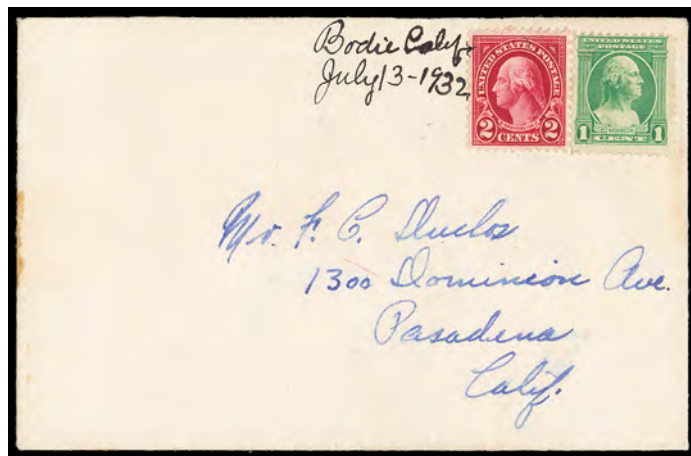 Bodie Calif
July 13-1932
UNITED STATES POSTAGE
2 CENTS 2
UNITED STATES
POSTAGE
1 CENT 1
Mr. F. C. Duclos
1300 Dominion Ave.
Pasadena
Calif.